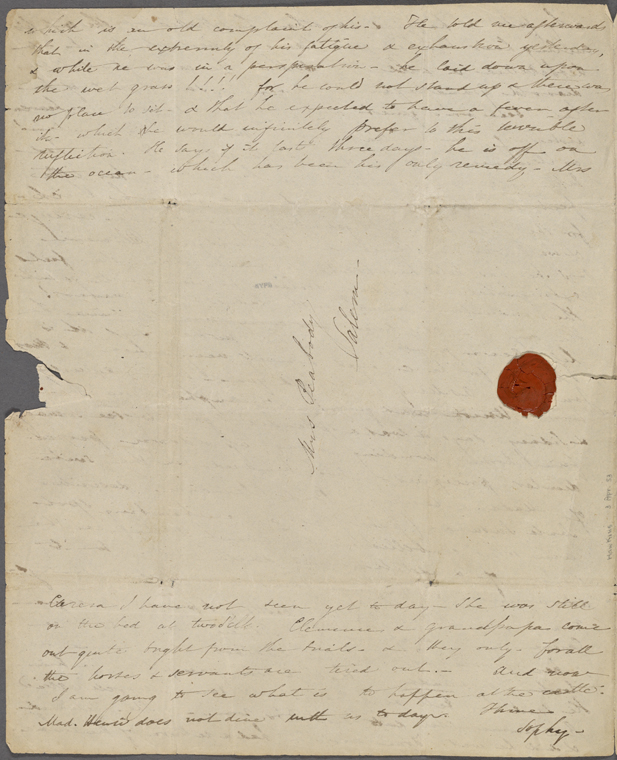 which is an old complaint of his - He told me afterwards
that in the extremity of his fatigue & exhaustion yesterday,
& while he was in a perspiration - he laid down upon
the wet grass !!!! for he could not stand up & there was
no place to sit - & that he expected to have a fever after
it - which he would infinitely prefer to this terrible
He says if it lasts three days - he is off on
the ocean - which has been his only remedy - Mrs
Mrs Peabody
Salem -
I have not seen yet to day - She was still
on the bed at twelve. Clemence & grandpapa come
out quite bright from the trials - & they only - for all
the horses & servants are tired out. - And now
I am going to see what is to happen at the castle.
Mad. does not dine with us to day. Thine
Sophy -